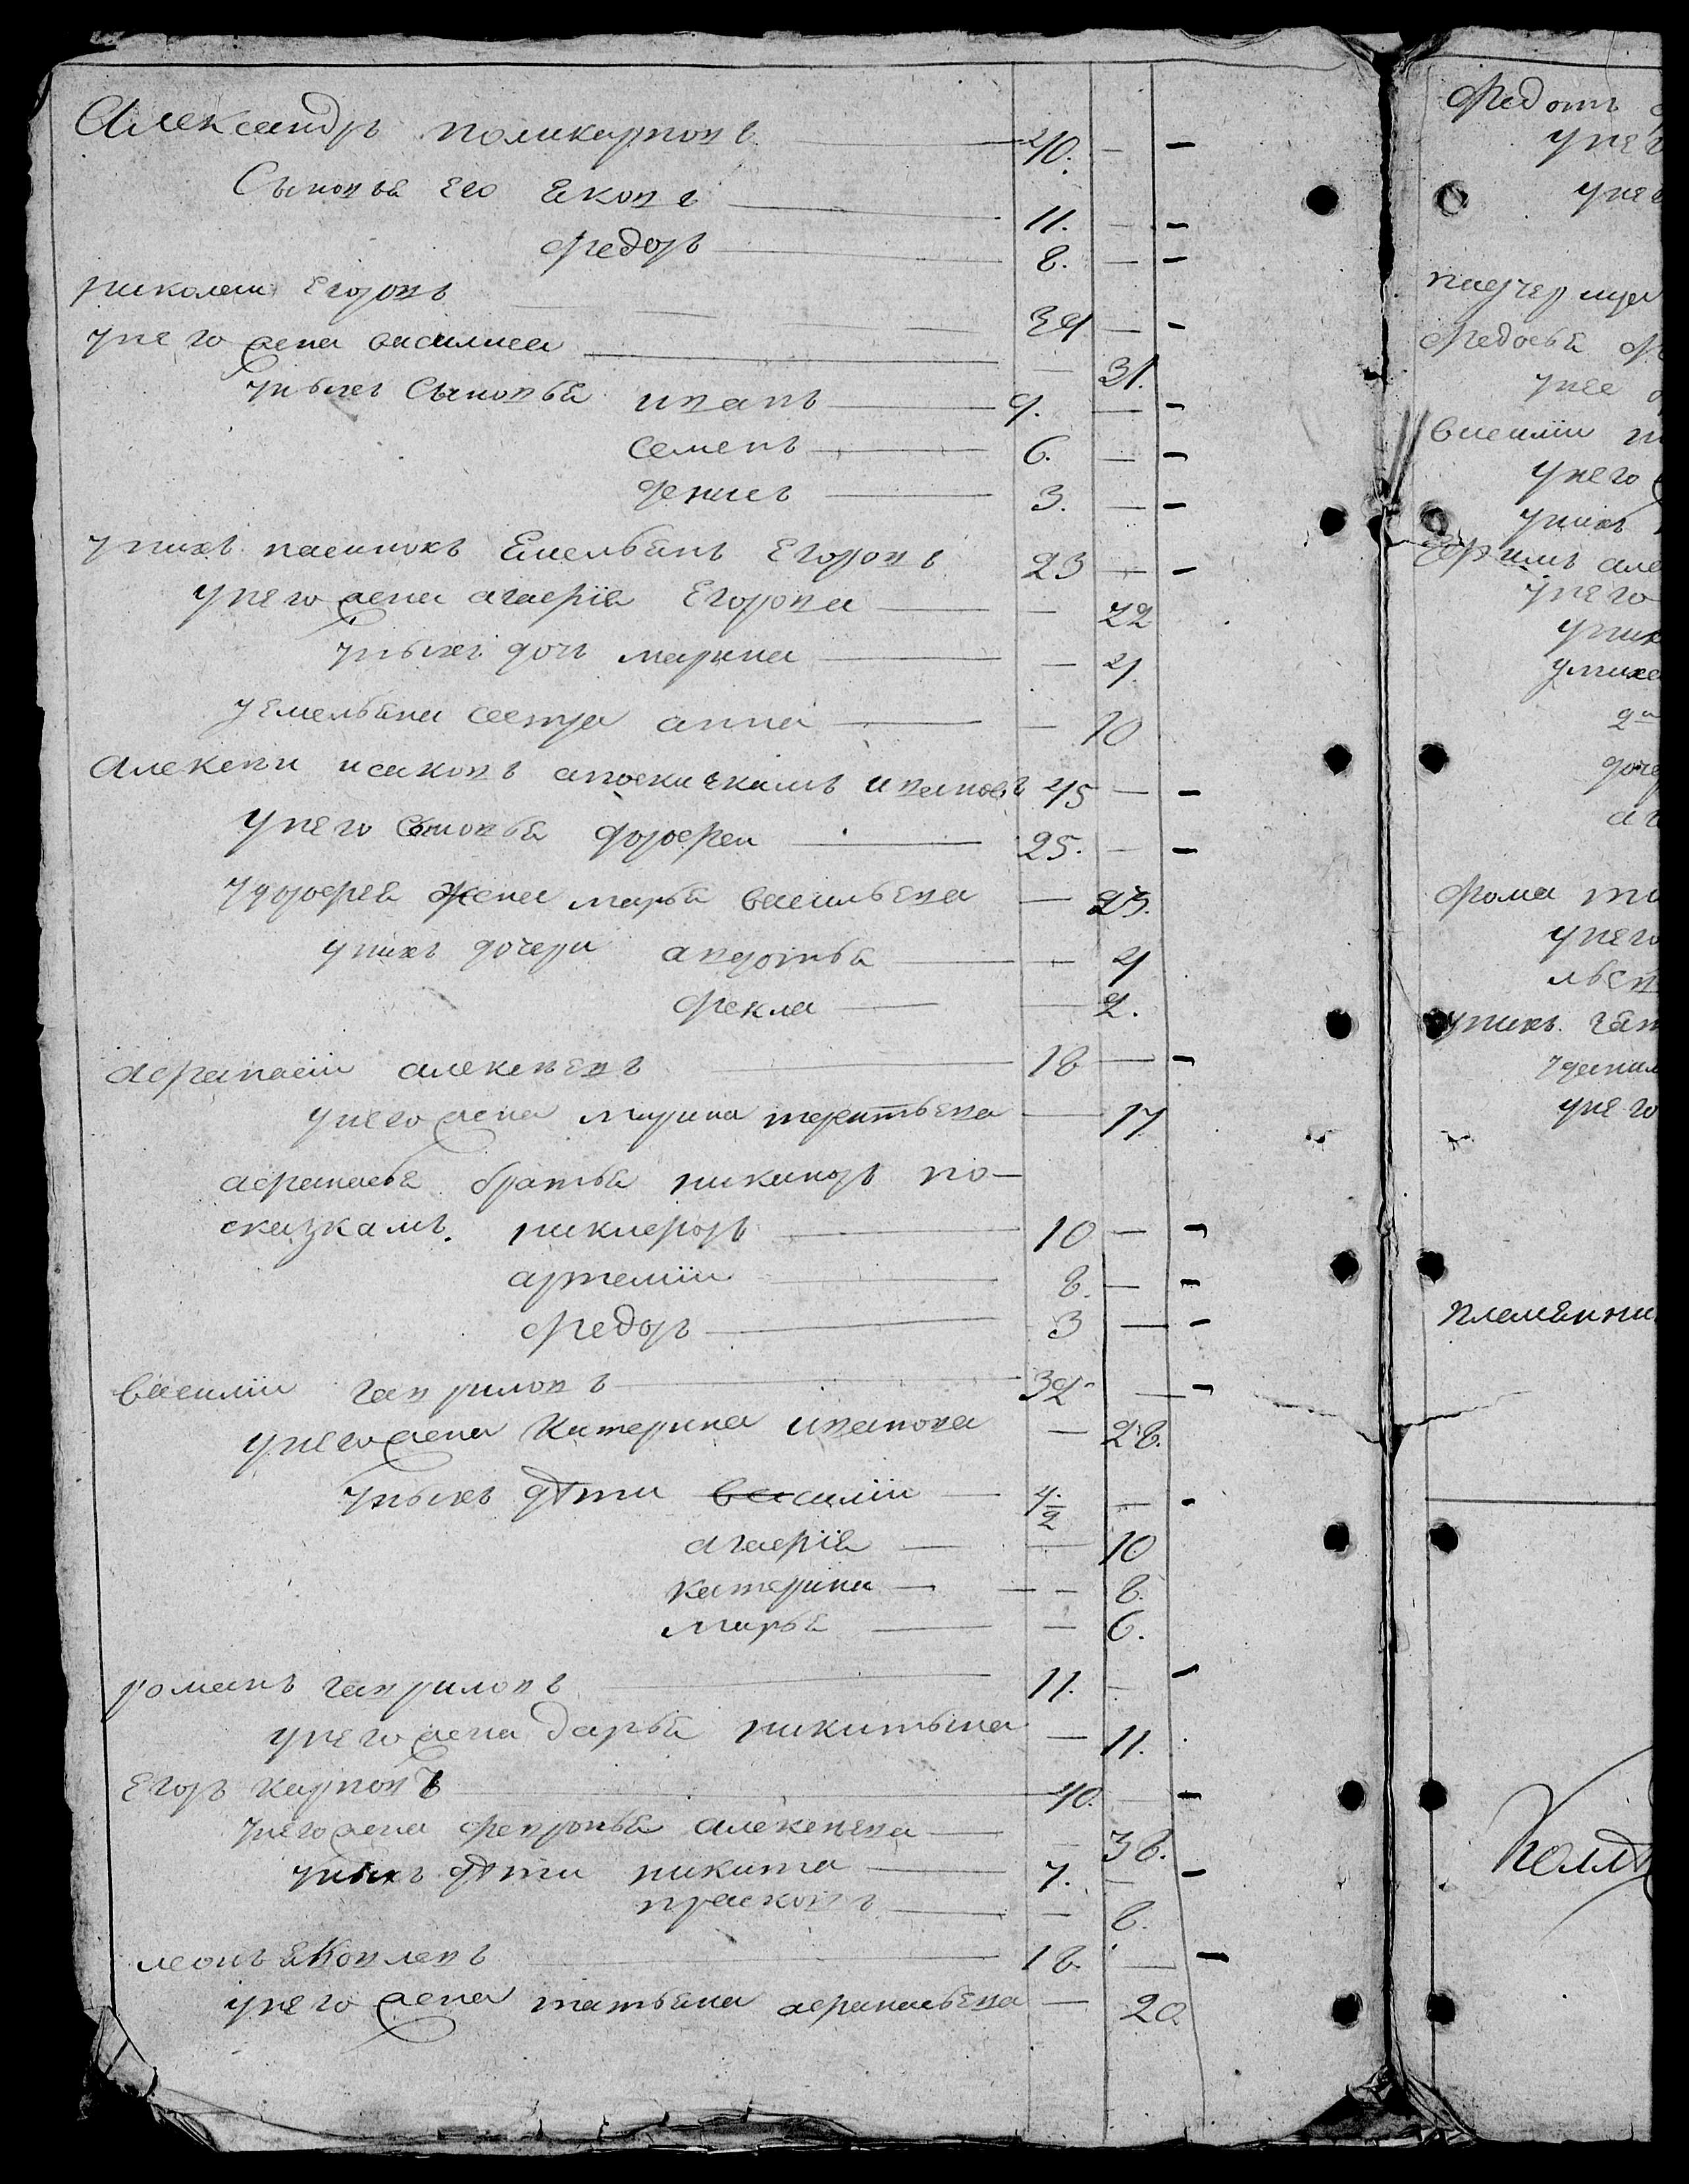 Александръ поликарповъ 40. — —
Сыновья его яковъ 11. — —
федоръ 8. — —
николаи егоровъ 34 — —
унего жена василиса — 31.
унихъ Сыновья иванъ 9. — —
семенъ 6. — —
денисъ 3. — —
унихъ пасынокъ Емельянъ Егоровъ 23 — —
унего жена агафія Егорова — 22
унихъ дочь марина — 4.
уемельяна сестра анна — 10
Алексеи исаковъ апоскаскамъ ивановъ 45 — —
унего Сыновья дорофеи 25. — —
удорофея жена марья васильева — 23.
унихъ дочери авдотья — 4
фекла — 2.
афанасіи алексеевъ 18 — —
унего жена марина терентьева — 17
афанасья братья никаноръ по-
сказкамъ. никифоръ 10 — —
артеміи 8. — —
федоръ 3 — —
василіи гавриловъ 32 — —
унего жена катерина иванова — 28.
унихъ дѣти василіи — —
агафія — 10
катерина — 8.
марья — 6.
романъ гавриловъ 11. — —
унего жена дарья никитына — 11.
егоръ карповъ 40. — —
унего жена февронья алексеева — 38.
унихъ дѣти никита 7. — —
— 8.
леонъ яковлевъ 18. — —
унего жена татьяна афанасьева — 20.
федотъ
унег
унег
падчерица
федосья
унее
василіи
унего
унихъ
ефимъ але
унего
уних
2
доче
фома
унего
унихъ
унего
племянни